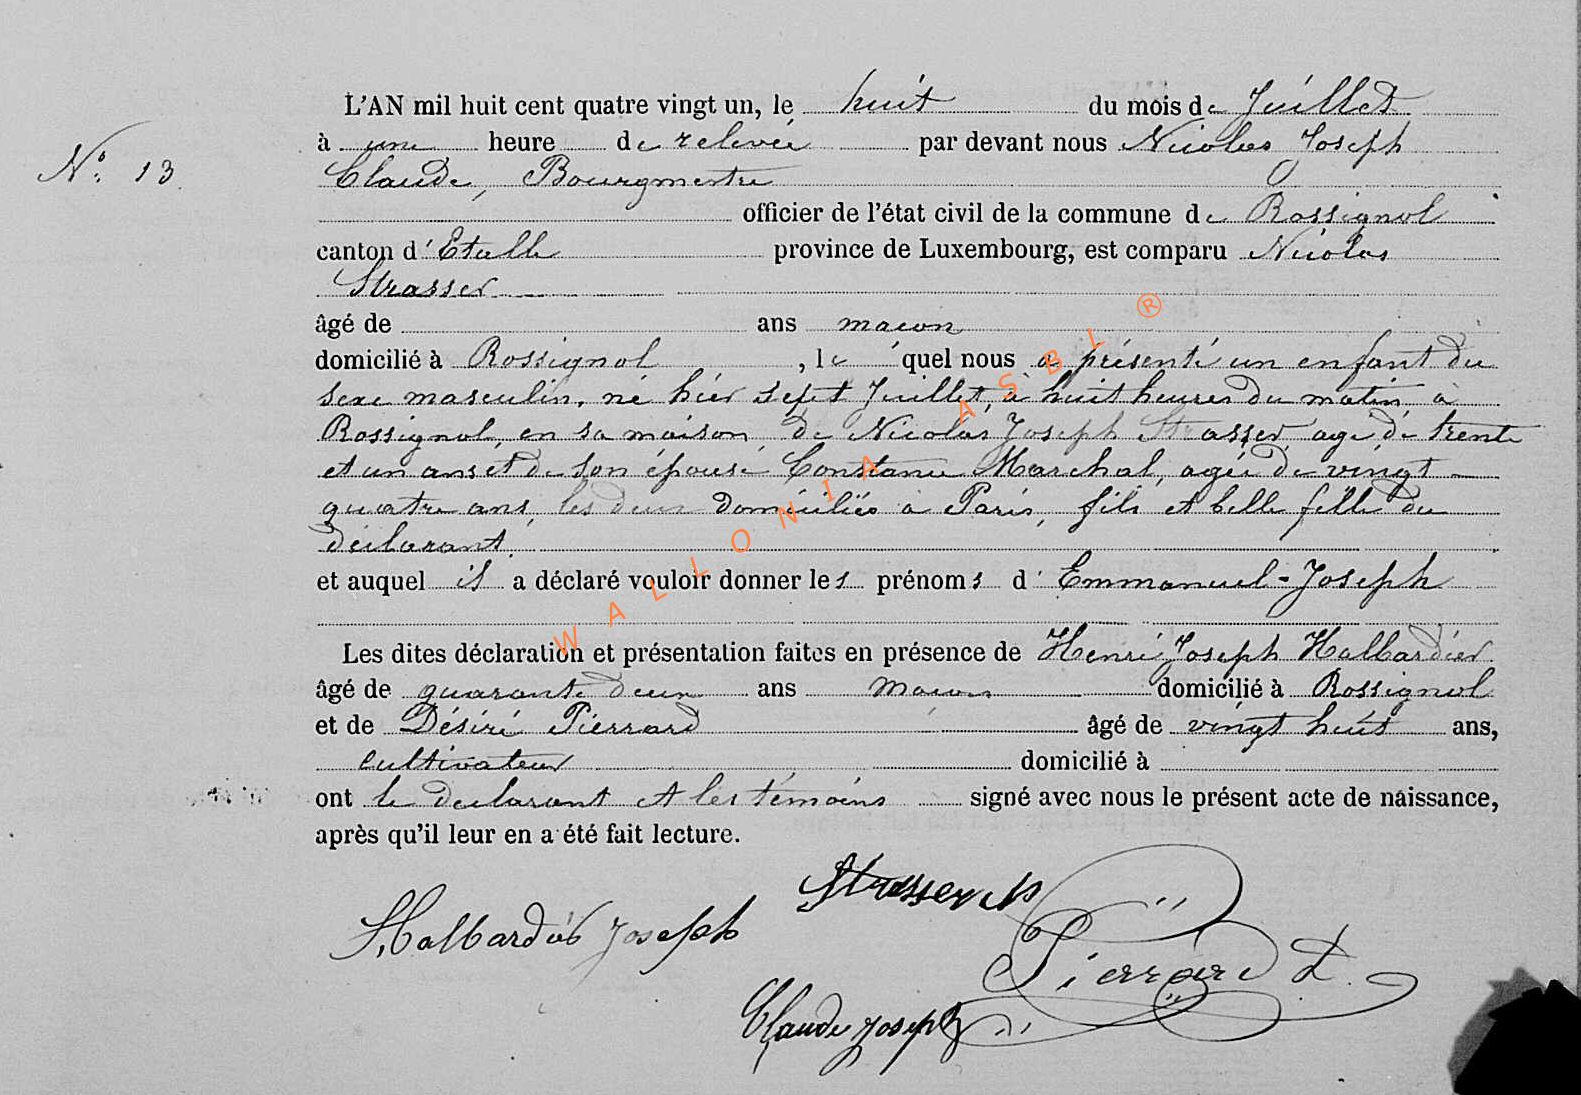 N.° 13
L'AN mil huit cent quatre vingt un, le huit du mois de Juillet
à une heure de relevée par devant nous Nicolas Joseph
Claude, Bourgmestre
officier de l'état civil de la commune de Rossignol
canton d'Etalle province de Luxembourg, est comparu Nicolas
Strasser
âgé de ans macon
domicilié à Rossignol, le quel nous a présenté un enfant du
sexe masculin, né hier sept Juillet, à huit heures du matin, à
Rossignol, en sa maison, de Nicolas Joseph Strasser, age de trente
et un ans et de son épouse Constance Marchal, agée de vingt
quatre ans, les deux domiciliés à Paris, fils et belle fille du
déclarant.
et auquel il a déclaré vouloir donner les prénoms d' Emmanuel-Joseph
Les dites déclaration et présentation faites en présence de Henri Joseph Halbardier
âgé de quarante deux ans macon domicilié à Rossignol
et de Désiré Pierrard âgé de vingt huit ans,
cultivateur domicilié à
ont le declarant et les témoins signé avec nous le présent acte de naissance,
après qu'il leur en a été fait lecture.
Strasser N
Halbardier Joseph
Pierrard D.
Claude Joseph
WALLONIA ASBL ®